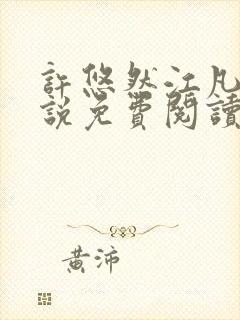 許悠然江凡
說免費閱讀
黃沛